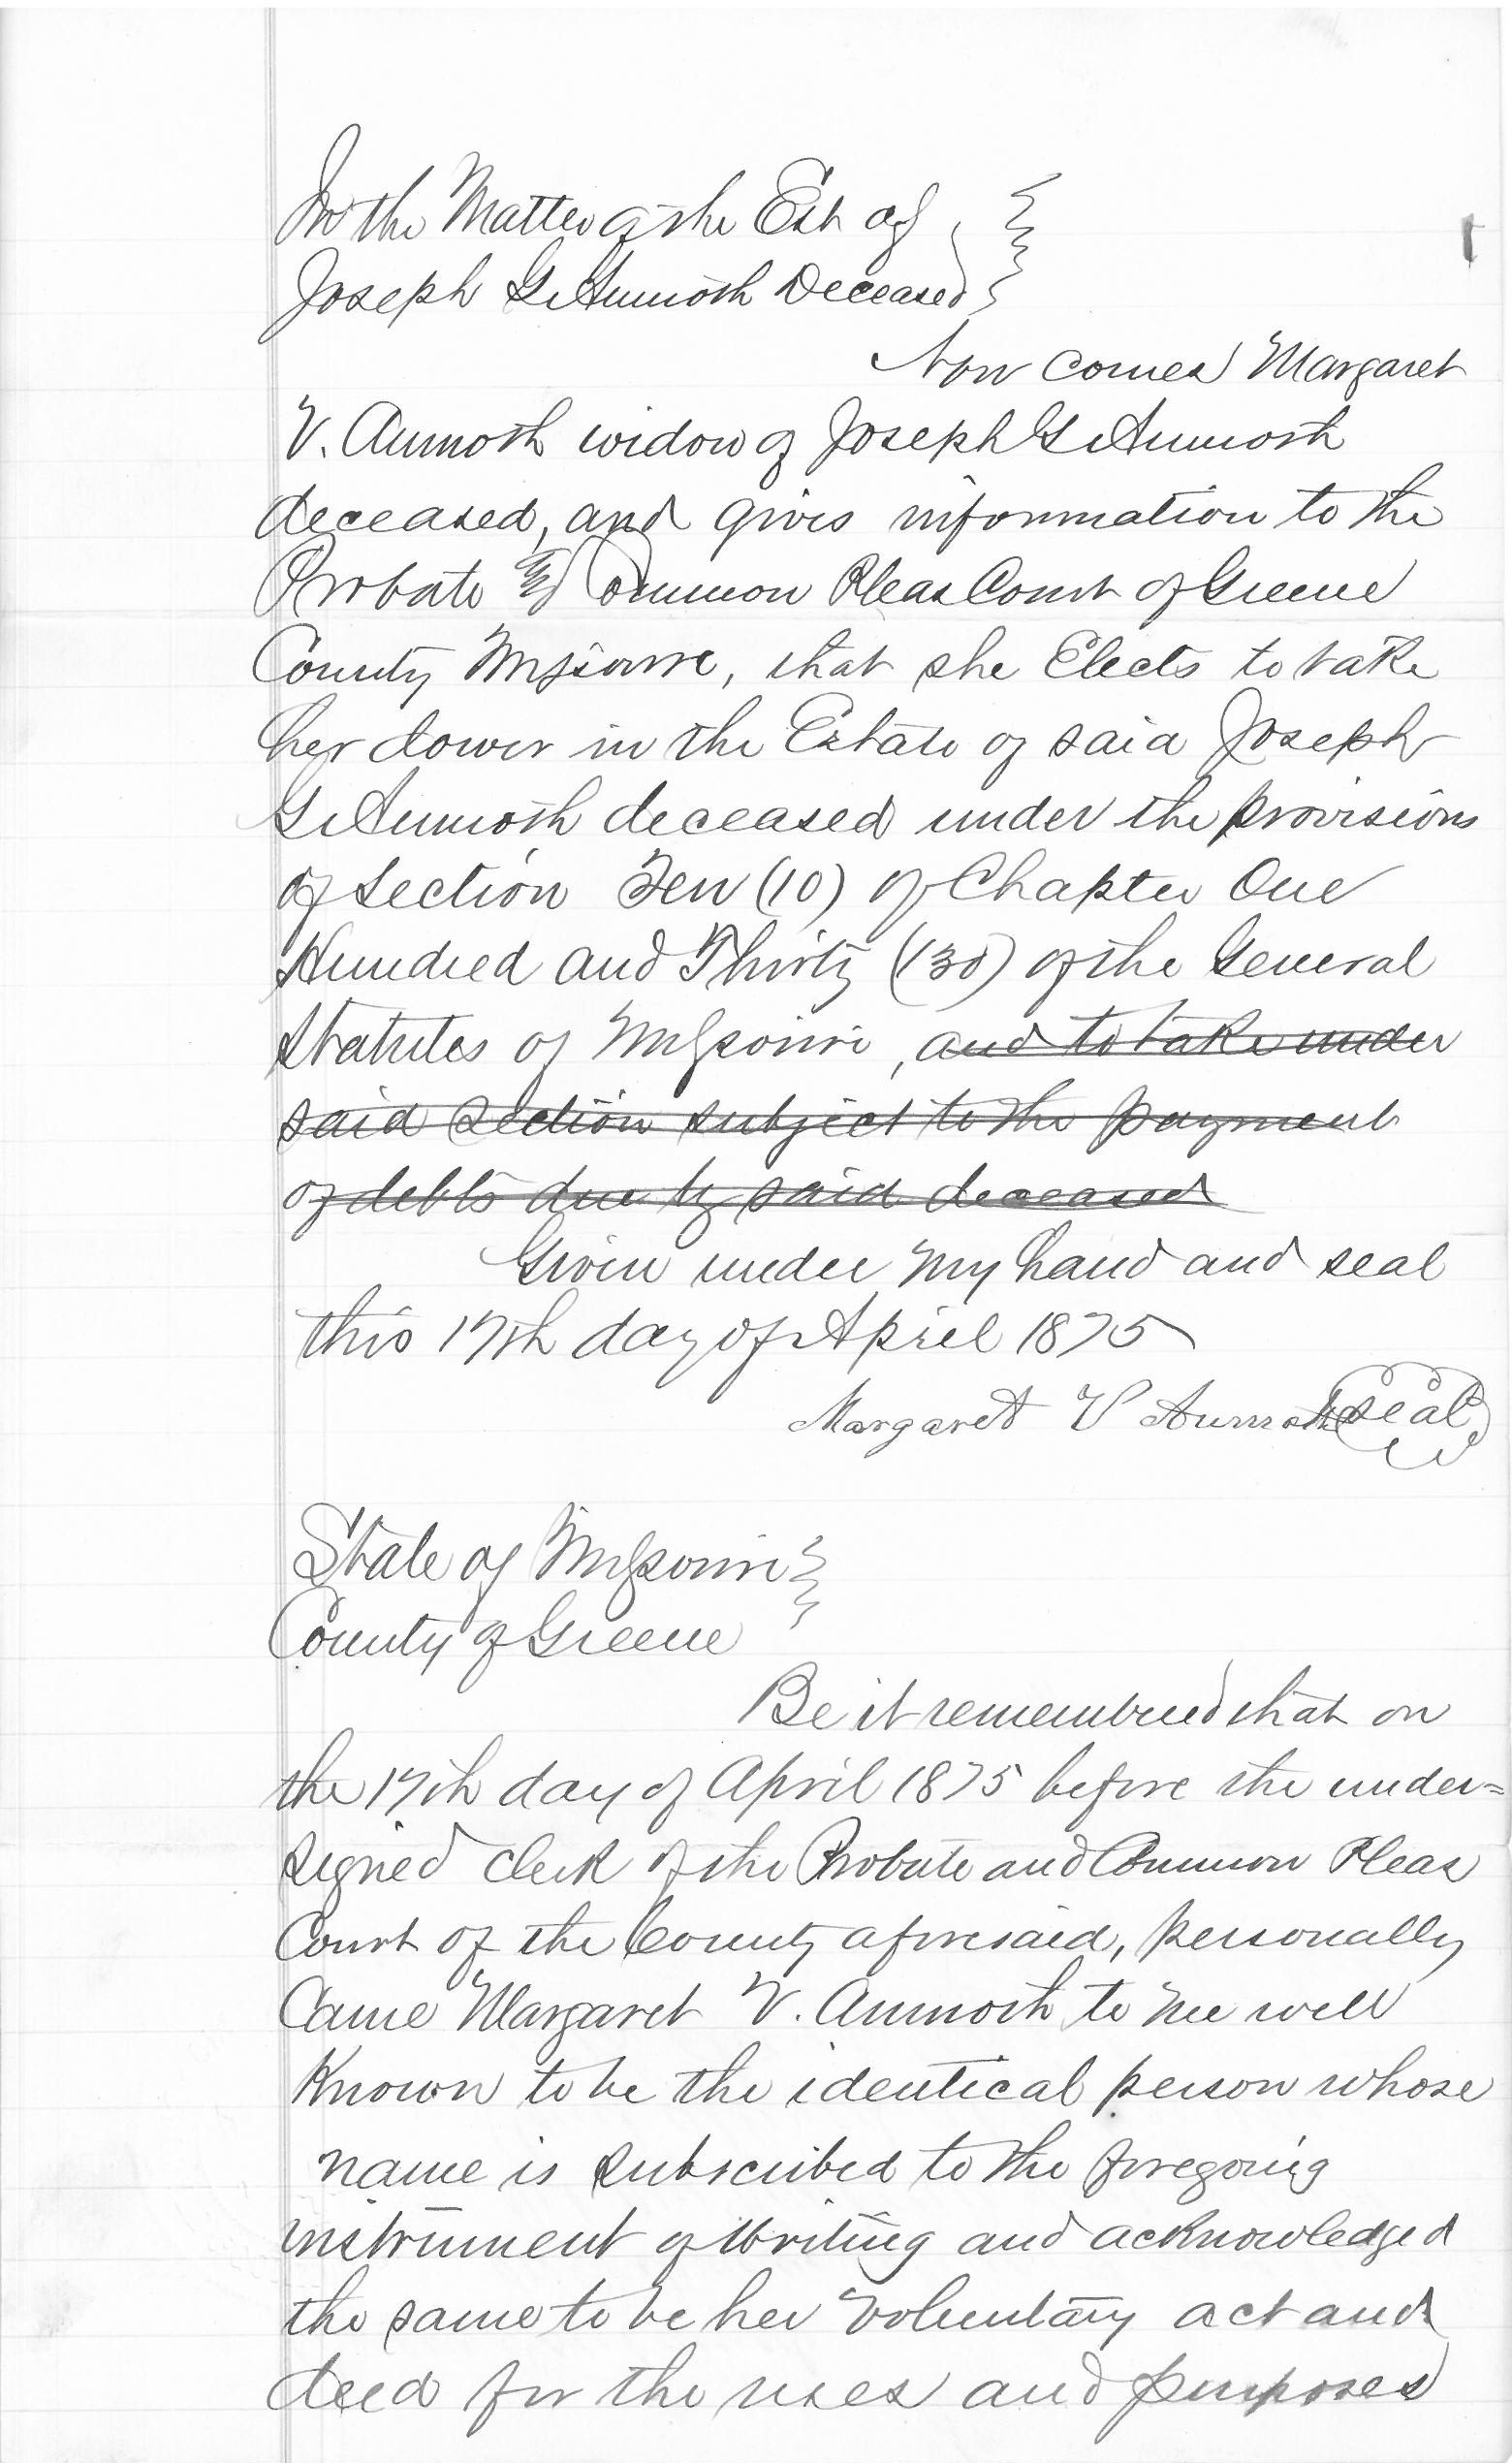 In the Matter of the Est of
Joseph G. Aumoth Deceased
Now comes Margaret
V. Aumoth widow of Joseph G Aumoth
deceased, and gives information to the
Probate & Common Pleas Court of Greene
County Missouri, that she Elects to take
her dower in the Estate of said Joseph
G Aumoth deceased under the provisions
of Section Ten (10) of Chapter One
Hundred and Thirty (130) of the General
Statutes of Missouri, and to take under
said section subject to the payment
of debts due by said deceased
Given under my hand and seal
this 17th day of April 1875
Margaret V Aumoth seal
State of Missouri
County of Greene
Be it remembered that on
the 17th day of April 1875 before the under=
signed Clerk of the Probate and Common Pleas
Court of the County aforesaid, personally
Came Margaret V. Aumoth to me well
Known to be the identical person whose
name is subscribed to the foregoing
instrument of Writing and acknowledged
the same to be her voluntary act and
deed for the uses and purposes